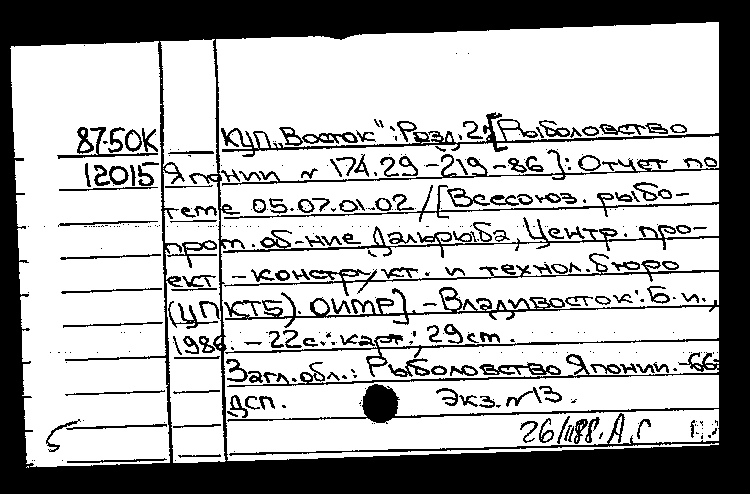 87-50К КУП „Восток": Разд. 2: [Рыболовство
12015 Японии № 174.29-219-86]: Отчет по
теме 05.07.01.02 / [Всесоюз. рыбо-
пром. об-ние Дальрыба, Центр. про-
ект.-конструкт. и технол. бюро
(ЦПКТБ). ОИМР]. - Владивосток: Б.и.,
1986. - 22с.: карт.; 29см.
Загл. обл.: Рыболовство Японии. - 66=
ДСП. Экз. №13.
26/III88. А.Г